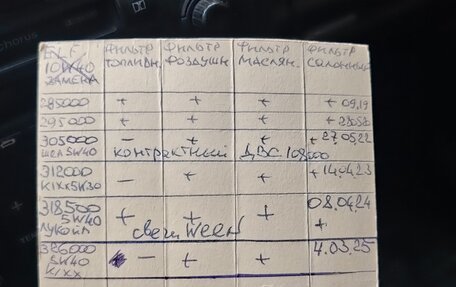 chorus
ELF 10W40 ЗАМЕНА ФИЛЬТР ТОПЛИВН. ФИЛЬТР ВОЗДУШН ФИЛЬТР МАСЛЯН. ФИЛЬТР САЛОННЫЙ
285000 + + + + 09,19
295000 + + + +
305000 – + + + 27,05,22
5W40 КОНТРАКТНЫЙ ДВС 108000
312000 – + + + 14,04,23
KIXX 5W30
318500 + + + 08,04,24
5W40 +
ЛУКОЙЛ свечи WEEN
326000 – + + 4.03.25
5W40
KIXX